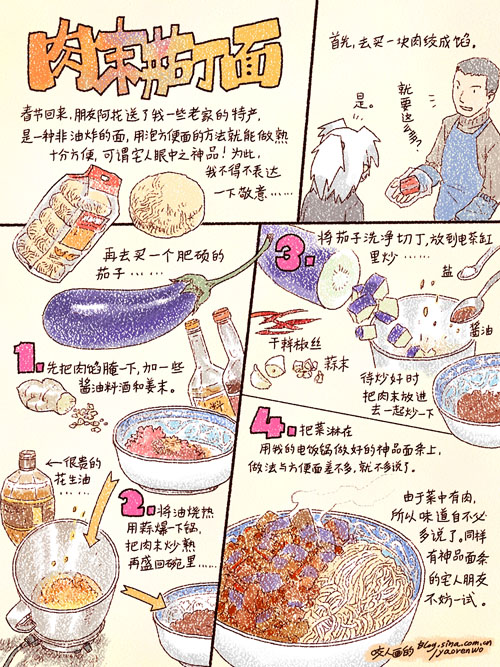 肉末茄丁面
春节回来,朋友阿花送了我一些老家的特产,
是一种非油炸的面,用泡方便面的方法就能做熟
十分方便,可谓宅人眼中之神品!为此,
我不得不表达
一下敬意……
首先,去买一块肉绞成馅。
就要这么多?
是。
再去买一个肥硕的
茄子……
1.先把肉馅腌一下,加一些
酱油料酒和姜末。
料
←很贵的
花生油
……
2.将油烧热
用蒜爆一下锅,
把肉末炒熟
再盛回碗里……
3.将茄子洗净切丁,放到电茶缸
里炒……
盐
酱油
干辣椒丝
蒜末
待炒好时
把肉末放进
去一起炒一下
4.把菜淋在
用我的电饭锅做好的神品面条上,
做法与方便面差不多,就不多说了。
由于菜中有肉,
所以味道自不必
多说了。同样
有神品面条
的宅人朋友
不妨一试。
咬人画的 blog.sina.com.cn
/yaorenwo